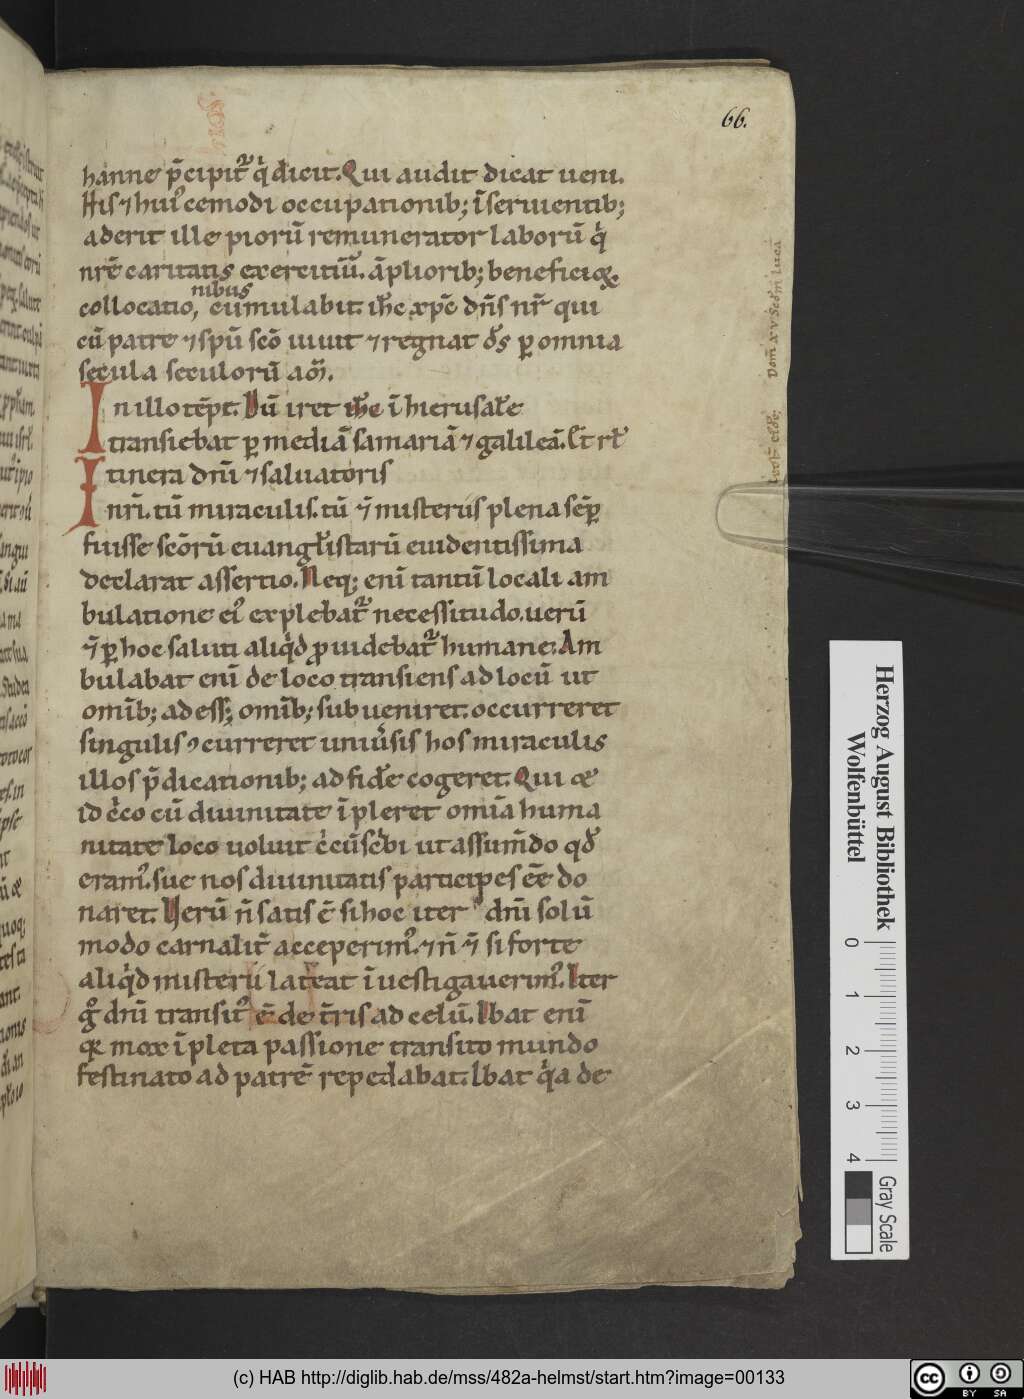 66.
hanne p̄cipit᷑ q̇ dicit. Qui audit dicat ueni.
His ⁊ hui᷒cemodi occupationib; īseruientib;
aderit ille piorū remunerator laborū q̇
nrē caritatis exercitiū. āpliorib; beneficioꝝ
nibus
collocatio, cumulabit. ih̄c xp̄c dn̄s nr̄ qui
cū patre ⁊ sp̄u sc̄o uiuit ⁊ regnat d̄s ꝑ omnia
secula seculorū am̄.
In illo tēp̄r. Dū iret ih̄c ī hierusal̄e
transiebat ꝑ mediā samariā ⁊ galileā. Et rl̄
Itinera dn̄i ⁊ saluatoris
nr̄i. tū miraculis. tū ⁊̄ misteriis plena sēꝑ
fuisse sc̄orū euangl̄istarū euidentissima
declarat assertio. Neq; enī tantū locali am
bulatione ei᷒ explebat᷑ necessitudo. uerū
⁊̄ ꝑ hoc saluti aliq̇d ꝓuidebat᷑ humane. Am
bulabat enī de loco transiens ad locū ut
omīb; adess&; omīb; subueniret. occurreret
singulis ꝯcurreret uniu̇sis hos miraculis
illos p̄dicationib; ad fidē cogeret. Qui cę
id ċco cū diuinitate īpleret omīa huma
nitate loco uoluit ċcūsċbi ut assum̄do qd̄
eram᷒. sue nos diuinitatis participes eē do
naret. Uerū n̄ satis ē si hoc iter dn̄i solū
modo carnalit̄ acceperim᷒. ⁊ n̄ ⁊̄ si forte
aliq̇d misterii lateat īuestigauerim᷒. Iter
g̊ dn̄i transit᷒ ē de t̄ris ad celū. Ibat enī
qꝛ mox īpleta passione transito mundo
festinato ad patrē repedabat. Ibat q̇a de
Dom̄ xv Sc̄dm lucā
Herzog August Bibliothek
Wolfenbüttel
0 1 2 3 4
Gray Scale
(c) HAB http://diglib.hab.de/mss/482a-helmst/start.htm?image=00133
cc BY SA